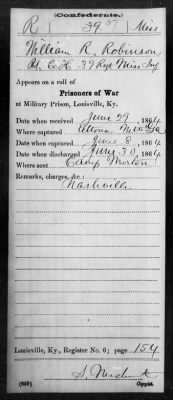 Confederate.
R 39 Miss
William R. Robinson
Co. H. 39 Reg Miss Inf
Appears on a roll of
Prisoners of War
at Military Prison, Louisville, Ky.
Date when received June 29, 1864
Where captured Altona Mts Ga
Date when captured June 8, 1864
Date when discharged June 30, 1864
Where sent Camp Morton
Remarks, charges, &c.:
Nashville
Louisville, Ky., Register No. 6; page 154
Copyist.